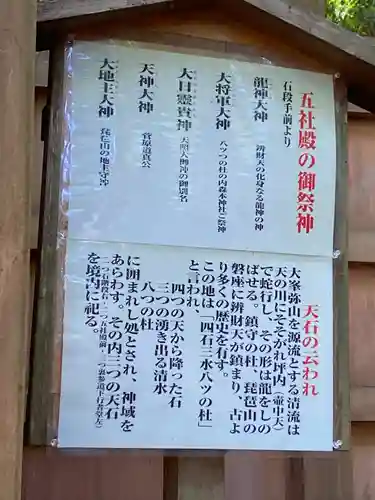 五社殿の御祭神
石段手前より
龍神大神
辨財天の化身なる龍神の神
大将軍大神
八ツの杜の内森本神社ご祭神
大日靈貴神
天照大御神の御別名
天神大神
菅原道真公
大地主大神
琵琶山の地主守神
天石の云われ
大峯弥山を源流とする清流は
天の川にそそがれ坪内(壷中天)
で蛇行し、その形は龍をしの
ばせる。鎮守の杜、琵琶山の
磐座に辨財天が鎮まり、古よ
り多くの歴史を有す。
この地は「四石三水八ツの杜」
と言われ、
四つの天から降った石
三つの湧き出る清水
八つの杜
に囲まれし処とされ、神域を
あらわす。その内三つの天石
を境内に祀る。